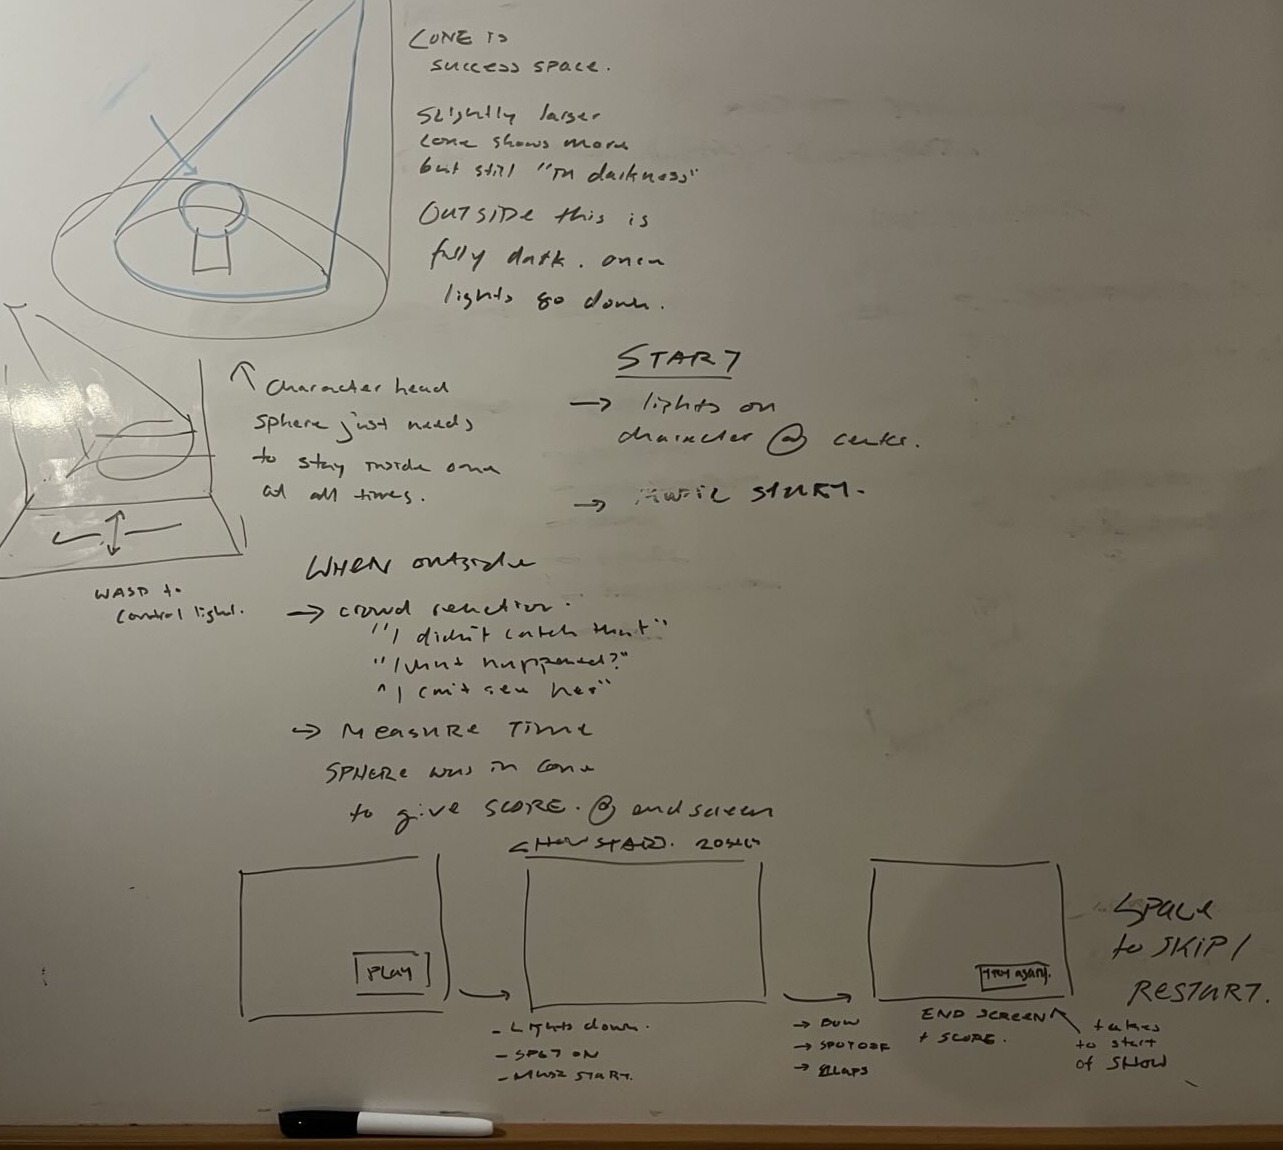 CONE IS
success space.
Slightly larger
cone shows more
but still "in darkness"
OUTSIDE this is
fully dark. once
lights go down.
Character head
sphere just needs
to stay inside one
at all times.
START
→ lights on
character @ center.
→ Music START.
WASD to
control light.
WHEN outside
→ crowd reaction.
"I didn't catch that"
"What happened?"
"I can't see her"
→ Measure Time
SPHERE was in cone
to give SCORE. @ end screen
SHOW START. 20 secs
PLAY
try again.
Space
to SKIP/
RESTART.
- Lights down.
- SPOT ON
- Music START.
→ BOW
→ SPOT OFF
→ CLAPS
END SCREEN
+ SCORE.
takes
to start
of SHOW